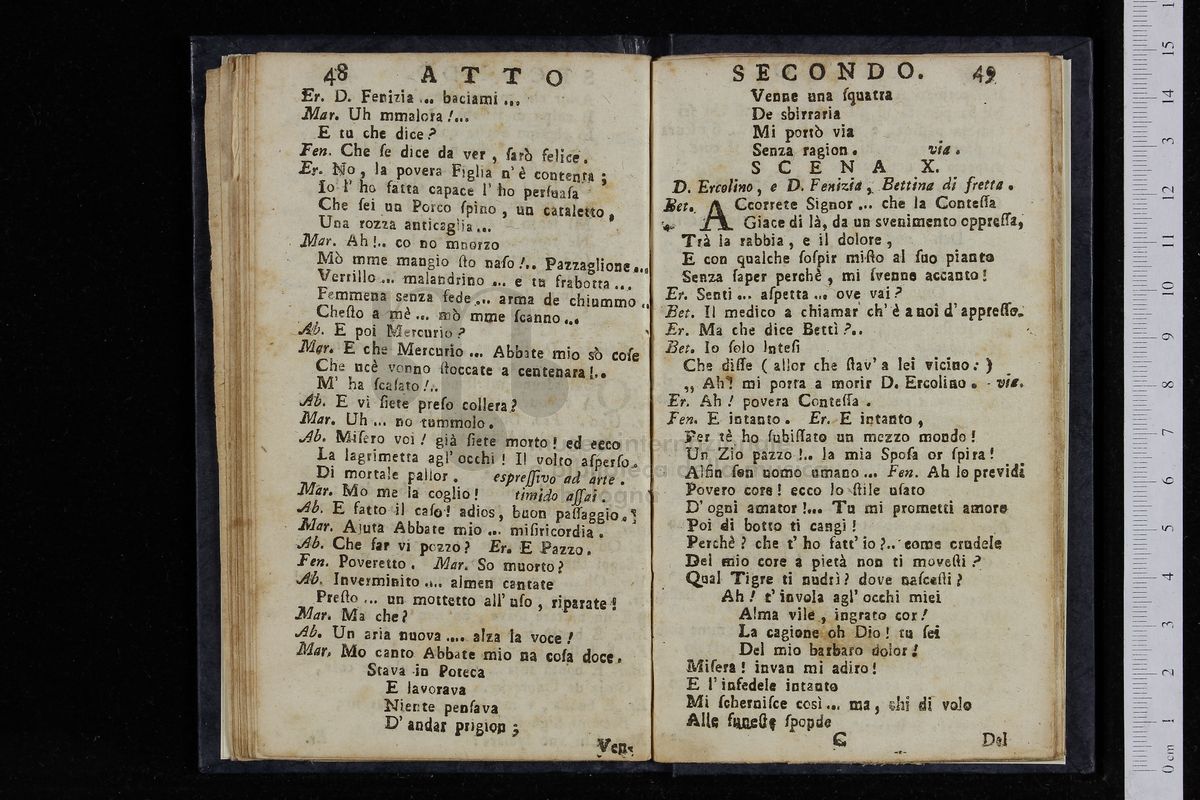 48 ATTO
Er. D. Fenizia ... baciami ...
Mar. Uh mmalora !...
E tu che dice ?
Fen. Che ſe dice da ver , ſarò felice .
Er. No , la povera Figlia n' è contenta ;
Io l' ho fatta capace l' ho perſuaſa
Che ſei un Porco ſpino , un cataletto ,
Una rozza anticaglia ...
Mar. Ah !.. co no mnorzo
Mò mme mangio ſto naſo !.. Pazzaglione ...
Verrillo ... malandrino ... e tu frabotta ...
Femmena senza fede ... arma de chiummo ..
Cheſto a mè ... mò mme ſcanno ...
Ab. E poi Mercurio ?
Mar. E che Mercurio ... Abbate mio sò coſe
Che ncè vonno ſtoccate a centenara !..
M' ha ſcaſato !..
Ab. E vi ſiete preſo collera ?
Mar. Uh ... no tummolo .
Ab. Miſero voi ! già ſiete morto ! ed ecco
La lagrimetta agl' occhi ! Il volto aſperſo
Di mortale pallor . eſpreſſivo ad arte .
Mar. Mo me la coglio ! timido aſſai .
Ab. E fatto il caſo ! adios , buon paſſaggio .
Mar. Ajuta Abbate mio ... miſiricordia .
Ab. Che far vi pozzo ? Er. E Pazzo .
Fen. Poveretto . Mar. So muorto ?
Ab. Inverminito .... almen cantate
Preſto ... un mottetto all' uſo , riparate !
Mar. Ma che ?
Ab. Un aria nuova .... alza la voce !
Mar. Mo canto Abbate mio na coſa doce .
Stava in Poteca
E lavorava
Niente penſava
D' andar prigion ;
Ven-
SECONDO. 49
Venne una ſquatra
De sbirraria
Mi portò via
Senza ragion . via .
SCENA X.
D. Ercolino , e D. Fenizia , Bettina di fretta .
Bet. ACcorrete Signor ... che la Conteſſa
Giace di là, da un svenimento oppreſſa,
Trà la rabbia , e il dolore ,
E con qualche ſoſpir miſto al ſuo pianto
Senza ſaper perchè , mi ſvenne accanto !
Er. Senti ... aſpetta ... ove vai ?
Bet. Il medico a chiamar ch' è a noi d' appreſſo.
Er. Ma che dice Betti ?..
Bet. Io ſolo Inteſi
Che diſſe ( allor che ſtav' a lei vicino : )
„ Ah ! mi porta a morir D. Ercolino . via.
Er. Ah ! povera Conteſſa .
Fen. E intanto . Er. E intanto ,
Per tè ho ſubiſſato un mezzo mondo !
Un Zio pazzo !.. la mia Spoſa or ſpira !
Alfin ſon uomo umano ... Fen. Ah lo previdi
Povero core ! ecco lo ſtile uſato
D' ogni amator !... Tu mi prometti amore
Poi di botto ti cangi !
Perchè ? che t' ho fatt' io ?.. come crudele
Del mio core a pietà non ti moveſti ?
Qual Tigre ti nudrì ? dove naſceſti ?
Ah ! t' invola agl' occhi miei
Alma vile , ingrato cor !
La cagione oh Dio ! tu ſei
Del mio barbaro dolor !
Miſera ! invan mi adiro !
E l' infedele intanto
Mi ſcherniſce così ... ma , chi di volo
Alle funeſte ſponde
C Del